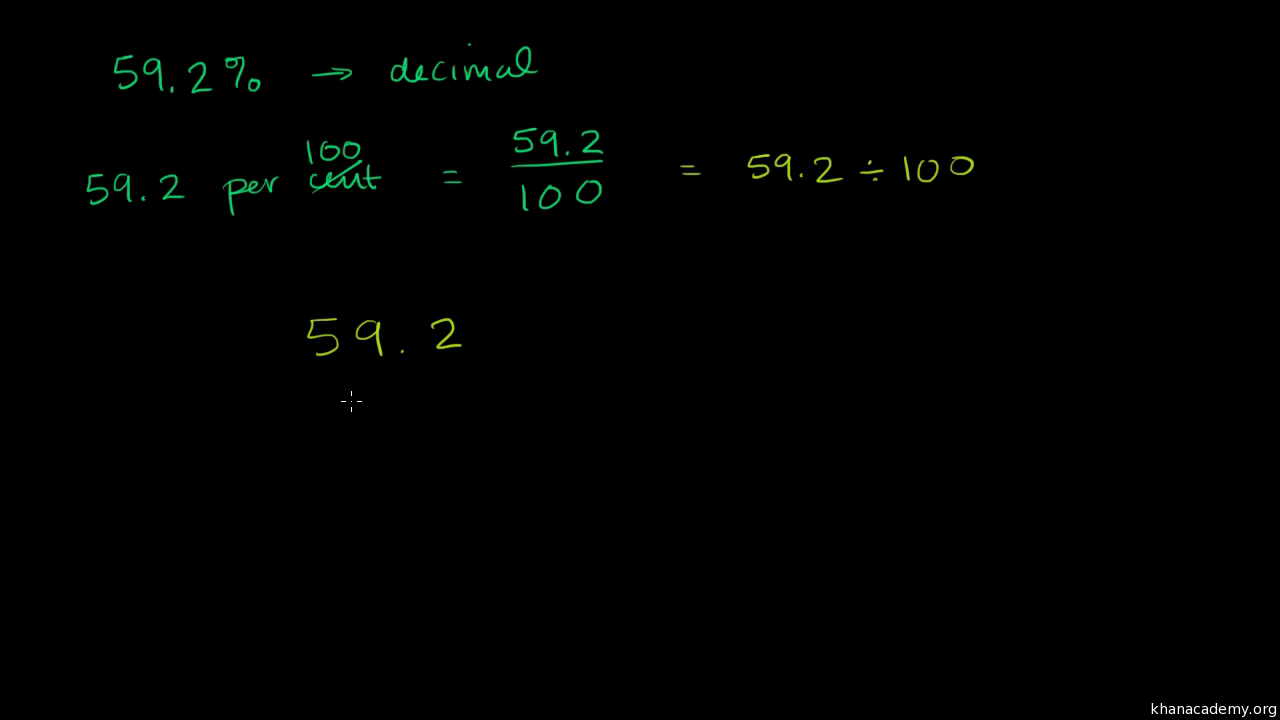 59.2% → decimal
59.2 per cent 100 = 59.2/100 = 59.2 ÷ 100
59.2
khanacademy.org